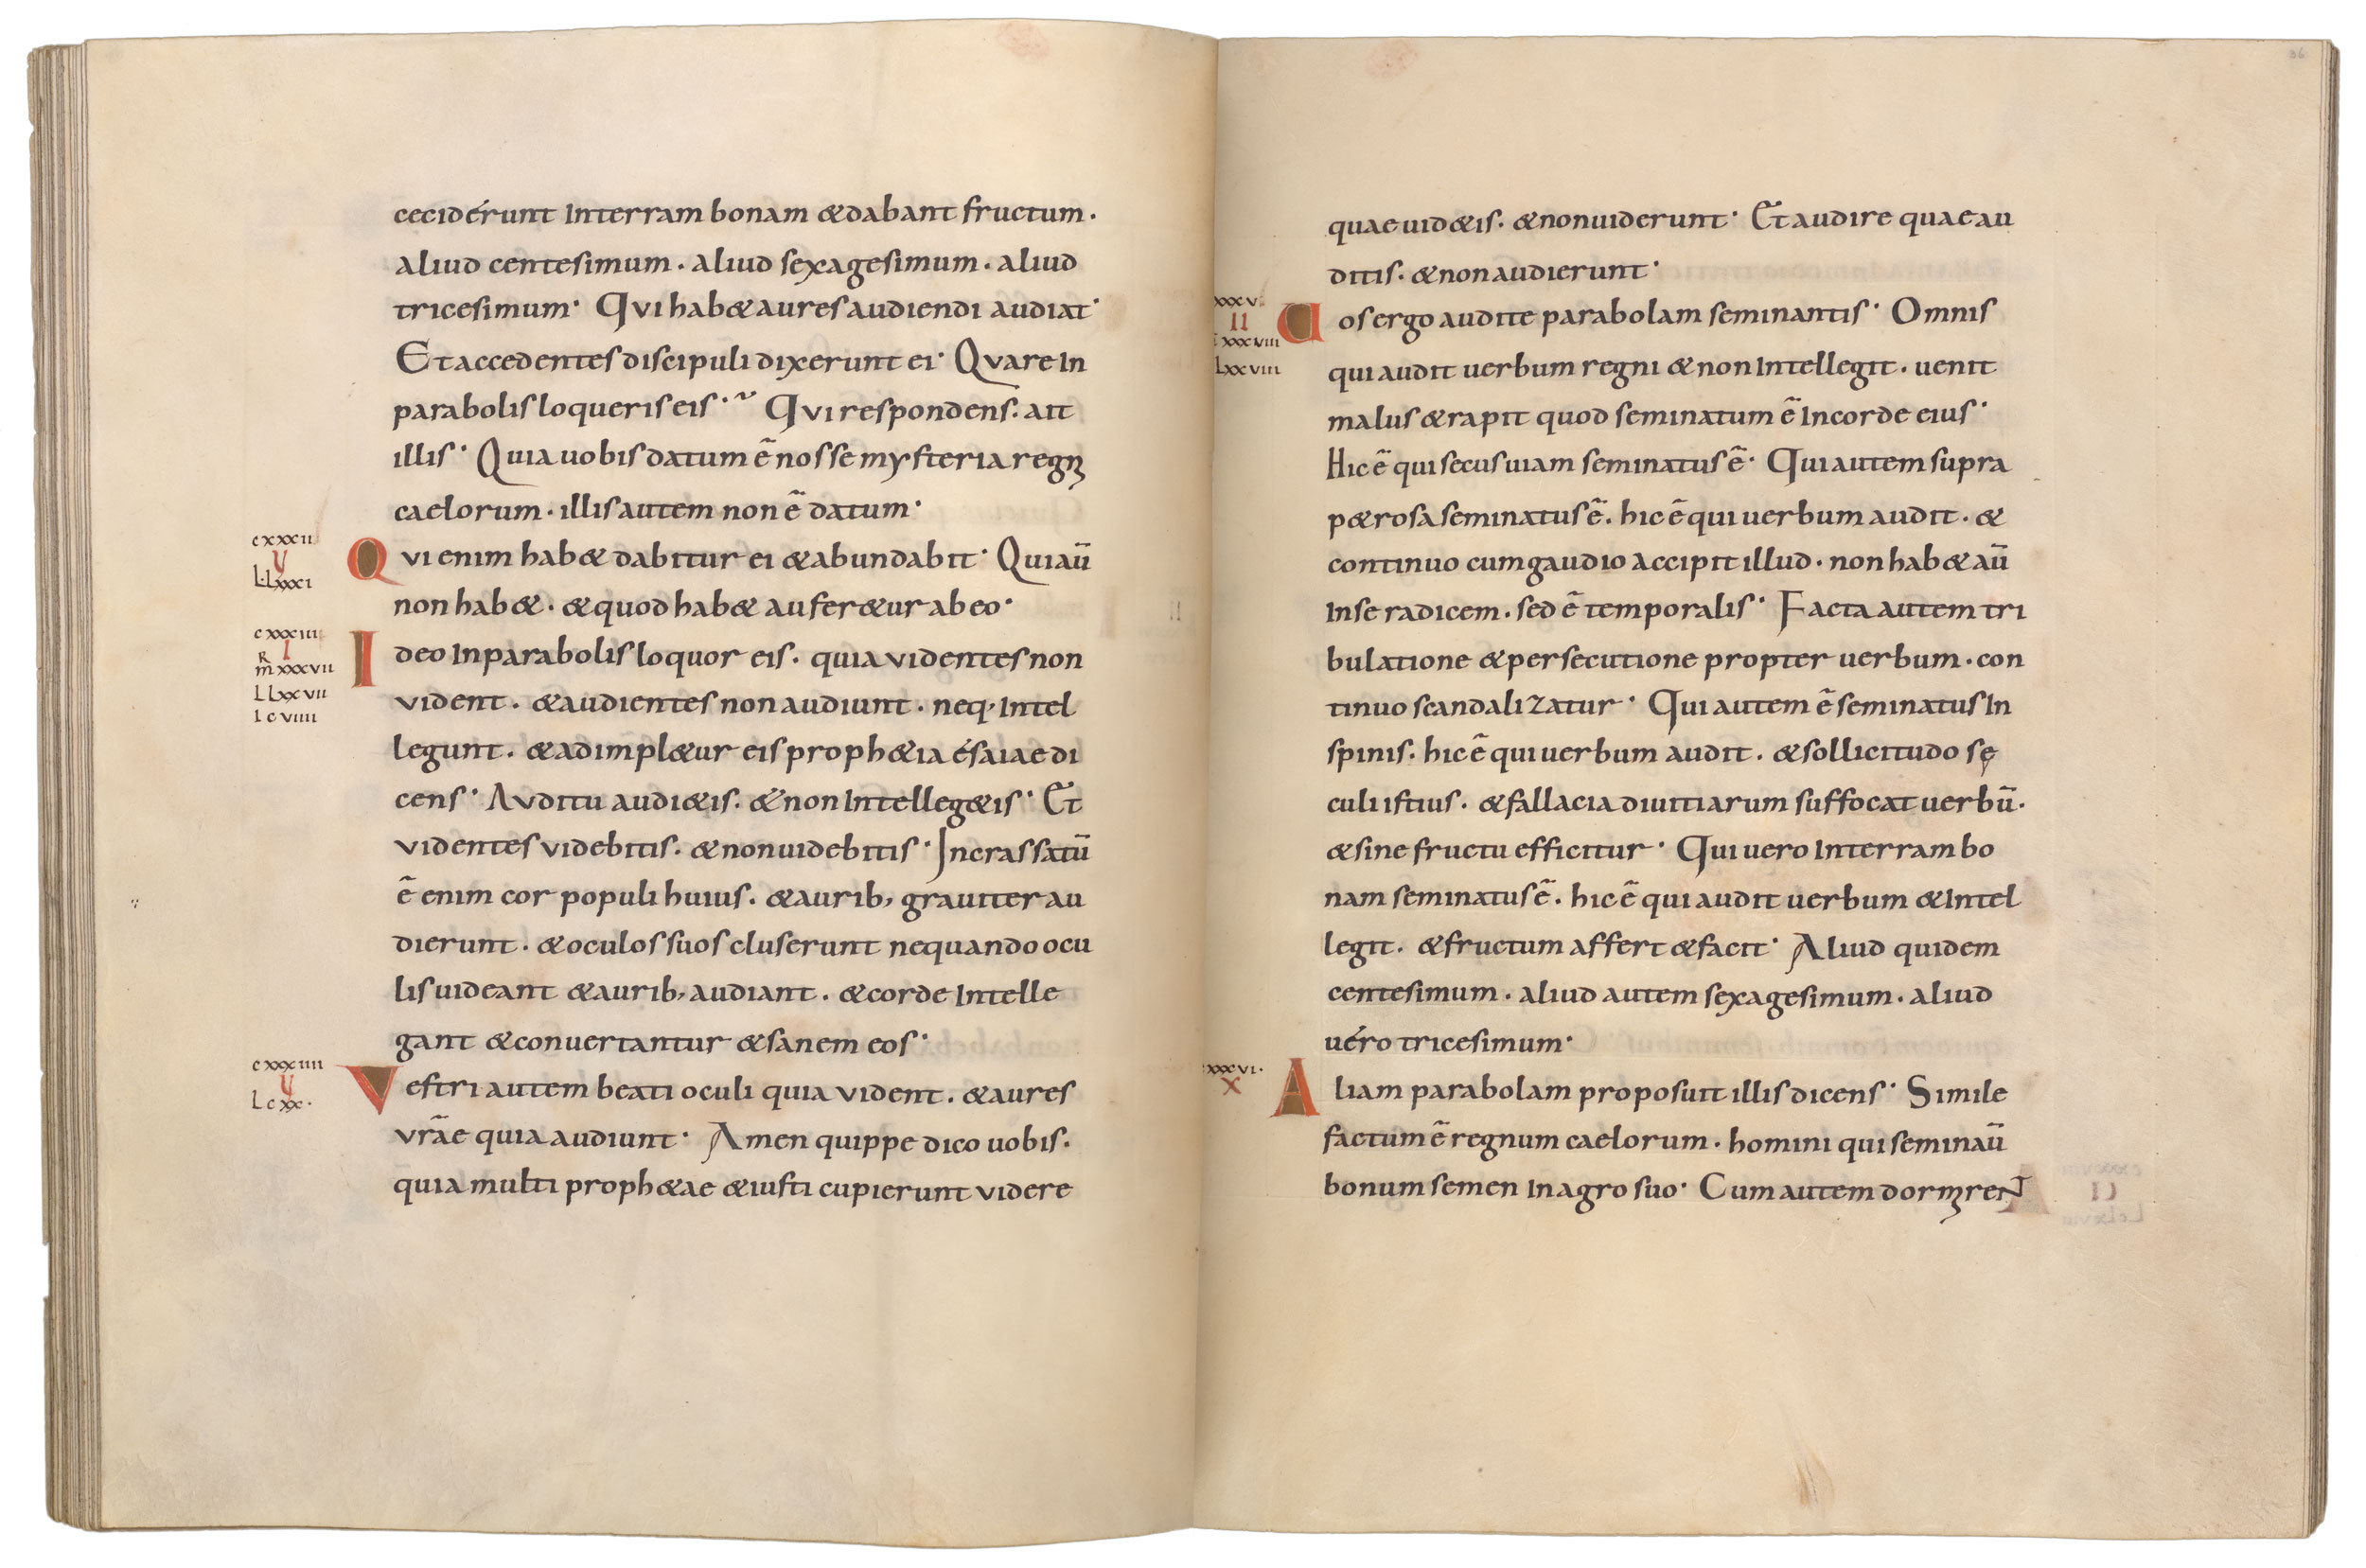 ceciderunt Interram bonam &dabant fructum.
aliud centesimum. aliud sexagesimum. aliud
tricesimum· Qui hab& aures audiendi audiat·
Et accedentes discipuli dixerunt ei· Quare In
parabolis loqueris eis· Qui respondens. ait
illis· Quia uobis datum ē nosse mysteria regni
caelorum. illis autem non ē datum·
cxxxii
v
L·Lxxxi
Qui enim hab& dabitur ei &abundabit· Qui aū
non hab&. &quod hab& aufer&ur ab eo·
cxxxiii
I
R
m xxxvii
L Lxxvii
I cviiii
Ideo Inparabolis loquor eis. quia videntes non
vident. &audientes non audiunt. neq, Intel
legunt. &adimpl&ur eis proph&ia ésaiae di
cens· Auditu audi&is. &non Intelleg&is· Et
videntes videbitis. &nonuidebitis· Incrassatū
ē enim cor populi huius. &aurib, grauiter au
dierunt. &oculos suos cluserunt nequando ocu
lis uideant &aurib, audiant. &corde Intelle
gant &conuertantur &sanem eos·
cxxxiiii
v
L cxx·
Vestri autem beati oculi quia vident. &aures
vr̄ae quia audiunt· Amen quippe dico uobis.
quia multi proph&ae &iusti cupierunt videre
36
quae uid&is. &nonuiderunt· Et audire quae au
ditis. &non audierunt·
xxxv
II
xxxviii
Lxxviii
Uos ergo audite parabolam seminantis· Omnis
qui audit uerbum regni &non Intellegit. uenit
malus &rapit quod seminatum ē Incorde eius·
Hic ē qui secus uiam seminatus ē· Qui autem supra
p&rosa seminatus ē. hic ē qui uerbum audit. &
continuo cum gaudio accipit illud. non hab& aū
Inse radicem. sed ē temporalis· Facta autem tri
bulatione &persecutione propter uerbum. con
tinuo scandalizatur· Qui autem ē seminatus In
spinis. hic ē qui uerbum audit. &sollicitudo sę
culi istius. &fallacia diuitiarum suffocat uerbū.
&sine fructu efficitur· Qui uero Interram bo
nam seminatus ē. hic ē qui audit uerbum &Intel
legit. &fructum affert &facit· Aliud quidem
centesimum. aliud autem sexagesimum. aliud
uéro tricesimum·
xxxvi·
x
Aliam parabolam proposuit illis dicens· Simile
factum ē regnum caelorum. homini qui seminaū
bonum semen Inagro suo· Cum autem dormirent